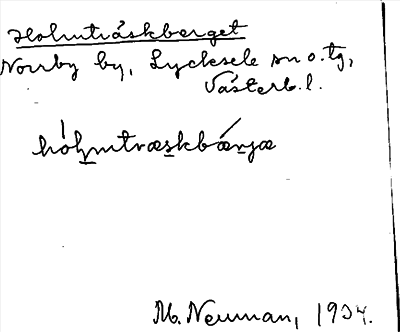 Holmträskberget
Norrby by, Lycksele sn o. tg,
Västerb. l.
hólmtræskbærjæ
M. Neuman, 1934.